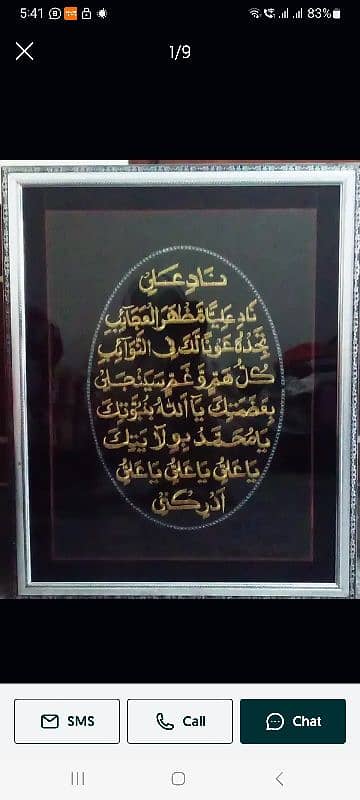 5:41
83%
1/9
ناد علی
ناد علیا مظهر العجائب
تجده عونا لك فی النوائب
كل هم و غم سینجلی
بعظمتك یا الله بنبوتك
یا محمد بولایتك
یا علی یا علی یا علی
ادركنی
SMS
Call
Chat